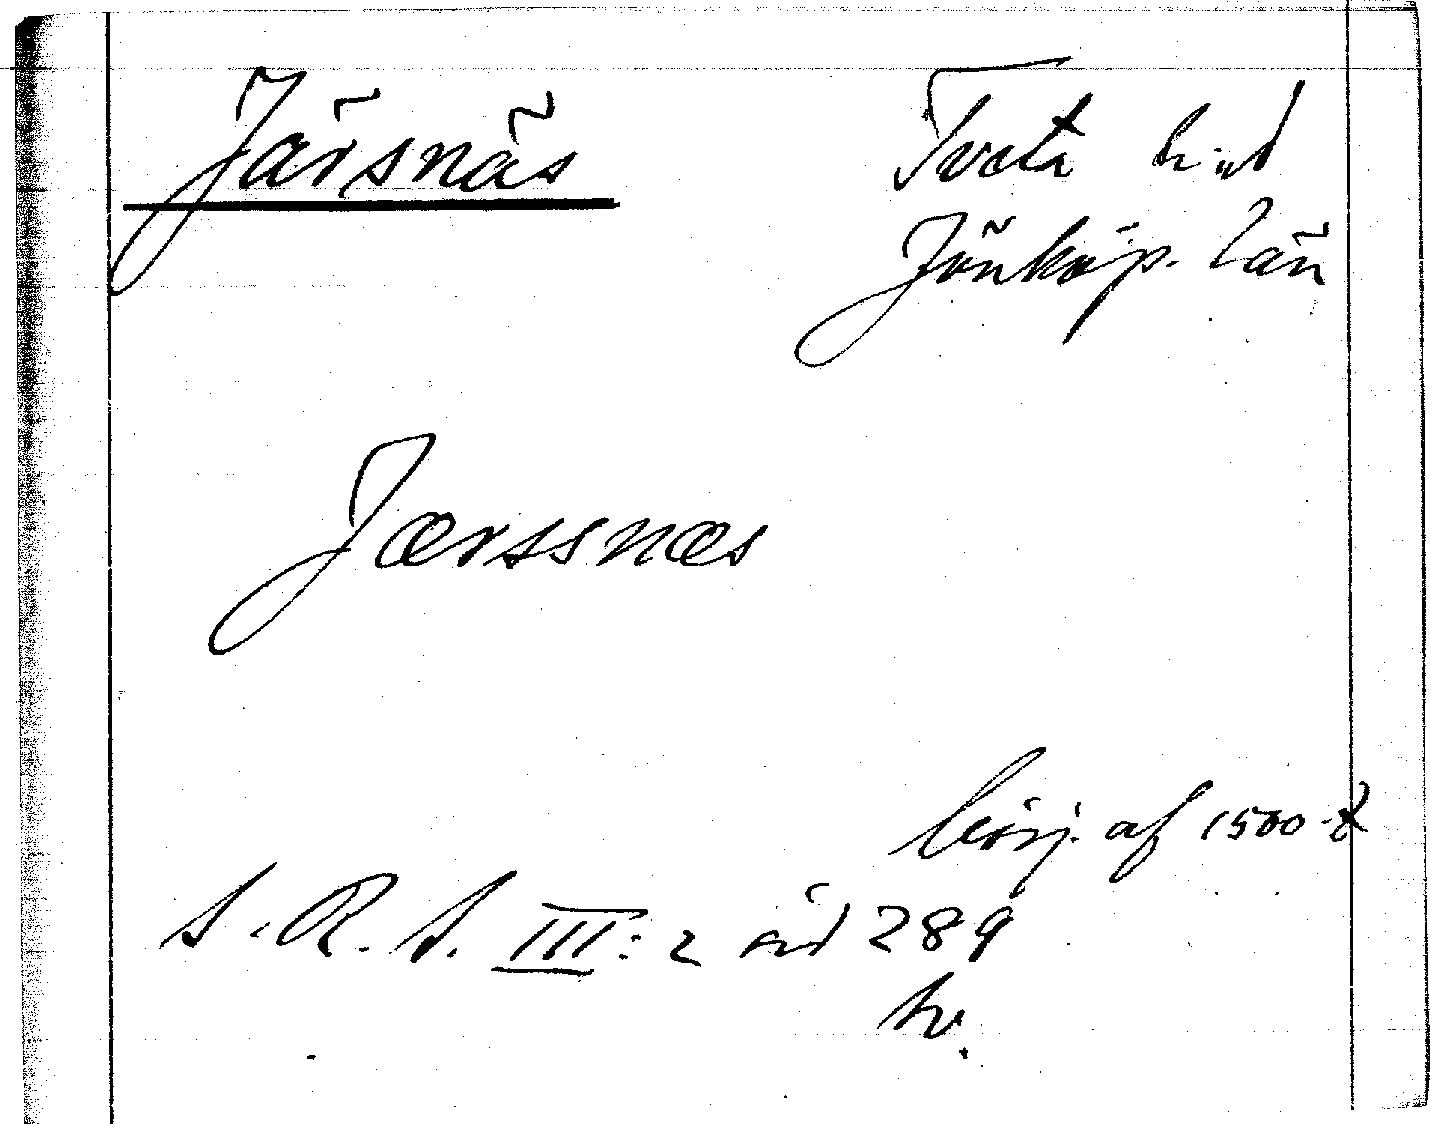 Järsnäs
Tveta h:d
Jönköp. län
Jærssnæs
börj. af 1500-t
S. R. S. III: 2 sid 289
h.